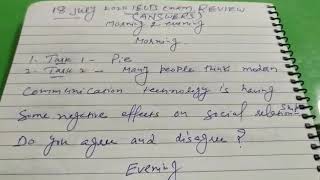 18 July 2020 IELTS exam REVIEW
(ANSWERS)
Morning & evening
Morning
1- Task 1 - Pie
2- Task 2 - Many people think modern
Communication technology is having
Some negative effects on social relationship
Do you agree and disagree?
Evening